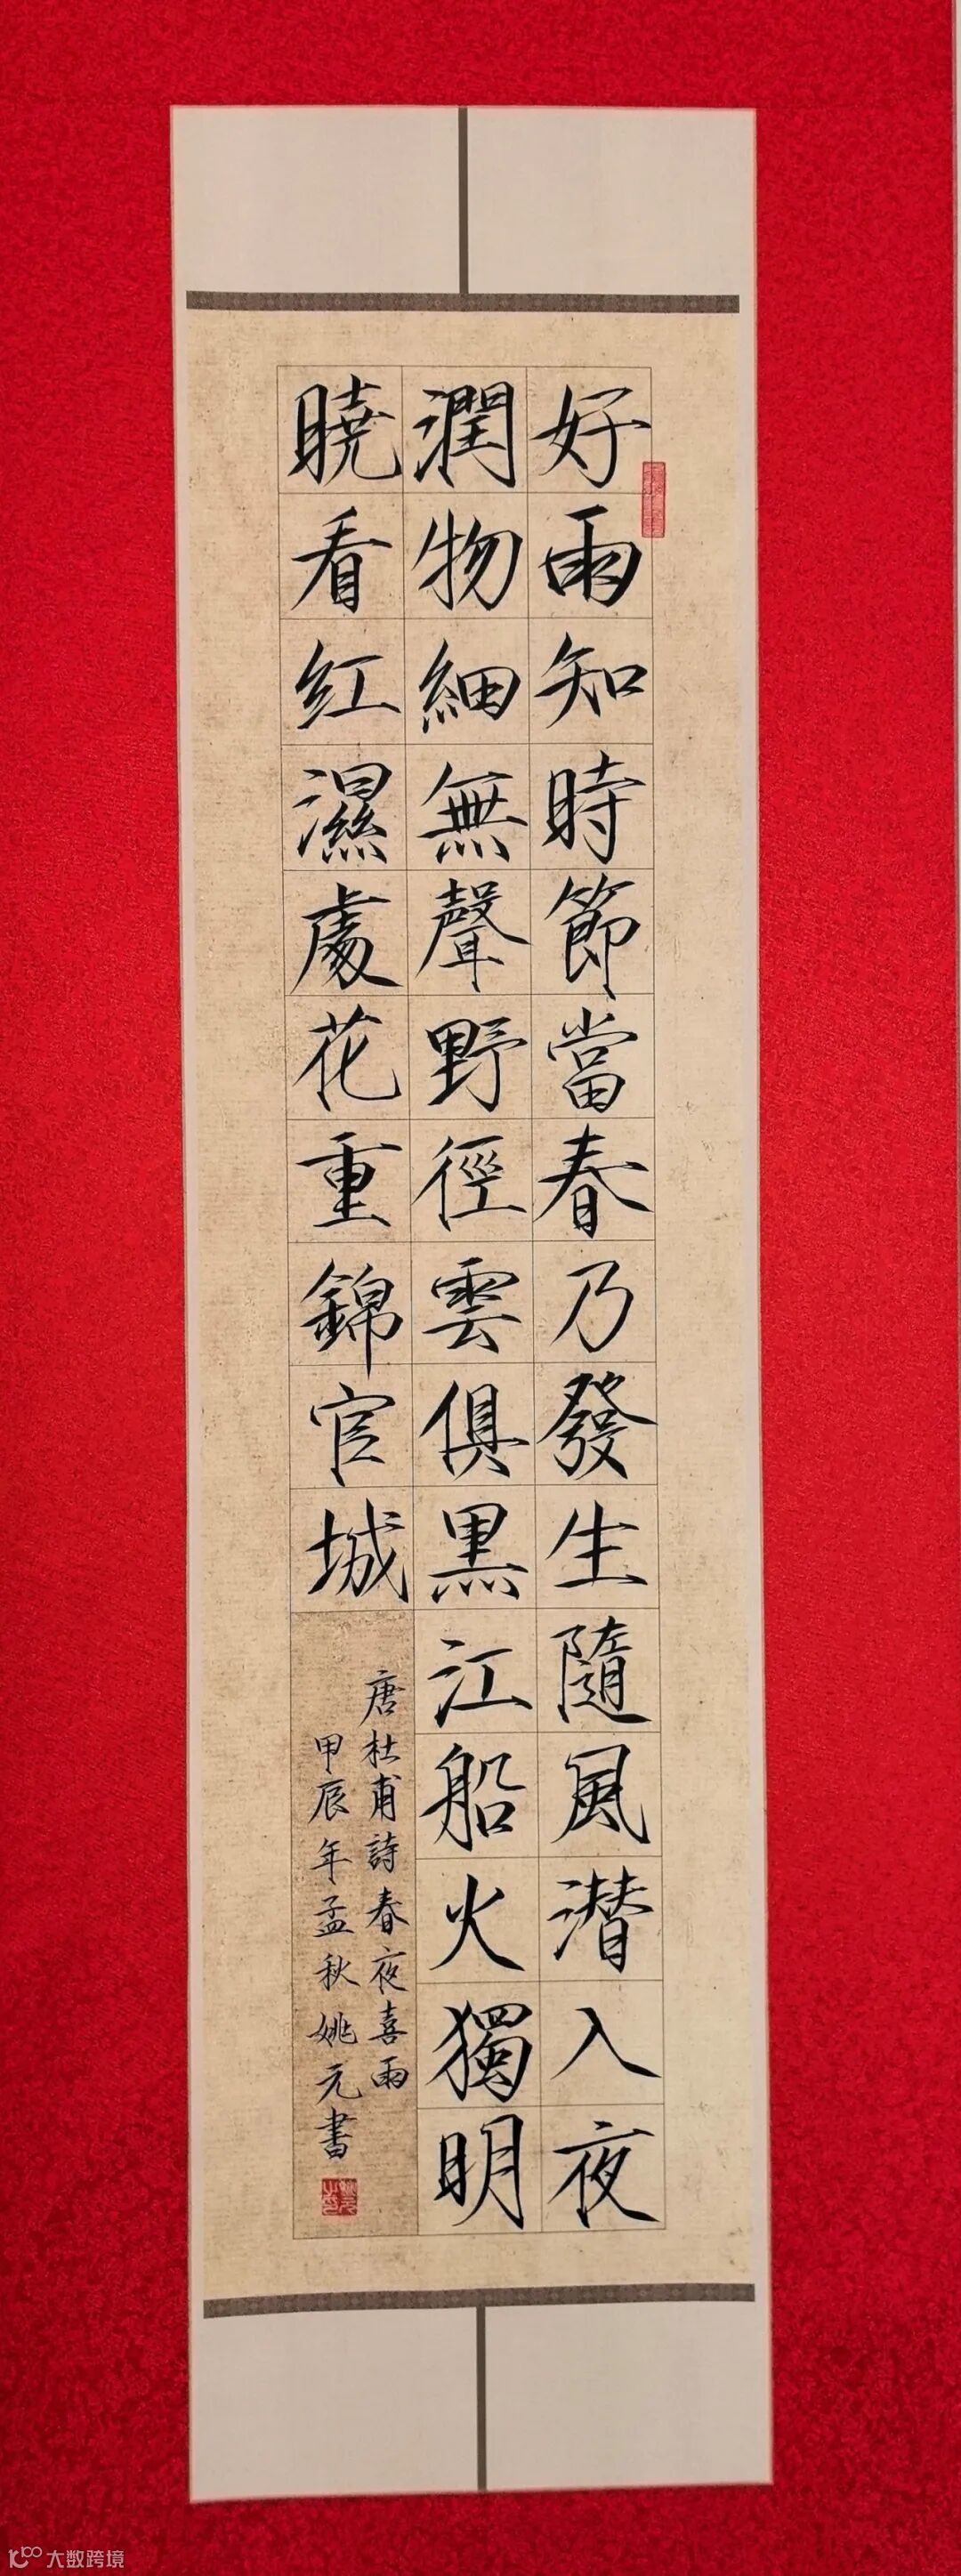 好雨知時節當春乃發生隨風潜入夜
潤物細無聲野徑雲俱黑江船火獨明
曉看紅濕處花重錦官城
唐杜甫詩春夜喜雨
甲辰年孟秋姚元書
大数跨境